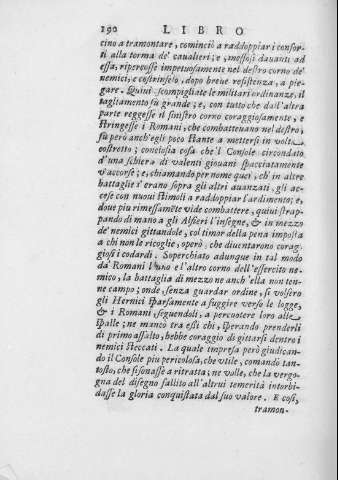 190 LIBRO
cino a tramontare, cominciò a raddoppiar i conforti
alla torma de' caualieri; e, mossosi dauanti ad
essa, ripercosse impetuosamente nel destro corno de'
nemici, e costrinselo, dopo breue resistenza, a piegare.
Quiui scompigliate le militari ordinanze, il
tagliamento fù grande; e, con tutto che dall'altra
parte reggesse il sinistro corno coraggiosamente, e
stringesse i Romani, che combatteuano nel destro,
fù però anch'egli poco stante a mettersi in volta
costretto; conciosia cosa che'l Console circondato
d'una schiera di valenti giouani spacciatamente
v'accorse; e, chiamando per nome quei, ch'in altre
battaglie s'erano sopra gli altri auanzati, gli accese
con nuoui stimoli a raddoppiar l'ardimento; e,
doue piu rimessamẽte vide combattere, quiui strappando
di mano a gli Alfieri l'insegne, & in mezzo
de' nemici gittandole, col timor della pena imposta
a chi non le ricoglie, operò, che diuentarono coraggiosi
i codardi. Soperchiato adunque in tal modo
da' Romani l'uno e l'altro corno dell'essercito nemico,
la battaglia di mezzo ne anch'ella non tenne
campo; onde, senza guardar ordine, si volsero
gli Hermici sparsamente a fuggire verso le logge,
& i Romani, seguendoli, a percuotere loro alle
spalle; ne manco tra essi chi, sperando prenderli
di primo assalto, hebbe coraggio di gittarsi dentro i
nemici steccati. La quale impresa però giudicando
il Console piu pericolosa, che vtile, comandò tantosto,
che si sonasse a ritratta; ne volle, che la vergogna
del disegno fallito all'altrui temerità intorbidasse
la gloria conquistata dal suo valore. E così,
tramon-